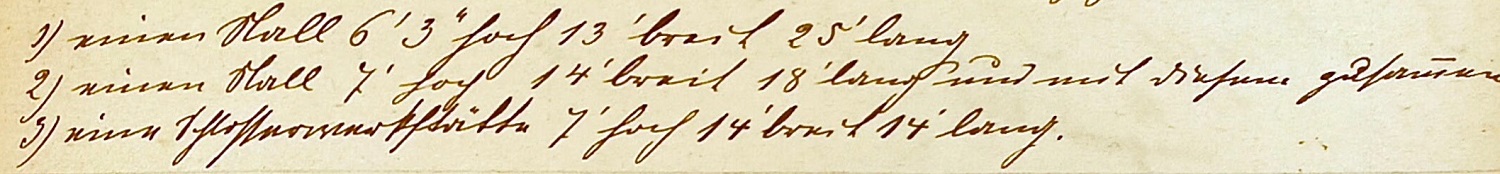 1) einen Stall 6' 3" hoch 13' breit 25' lang
2) einen Stall 7' hoch 14' breit 18' lang und mit diesem zusam̅en
3) eine Schlosserwerkstätte 7' hoch 14' breit 14' lang.